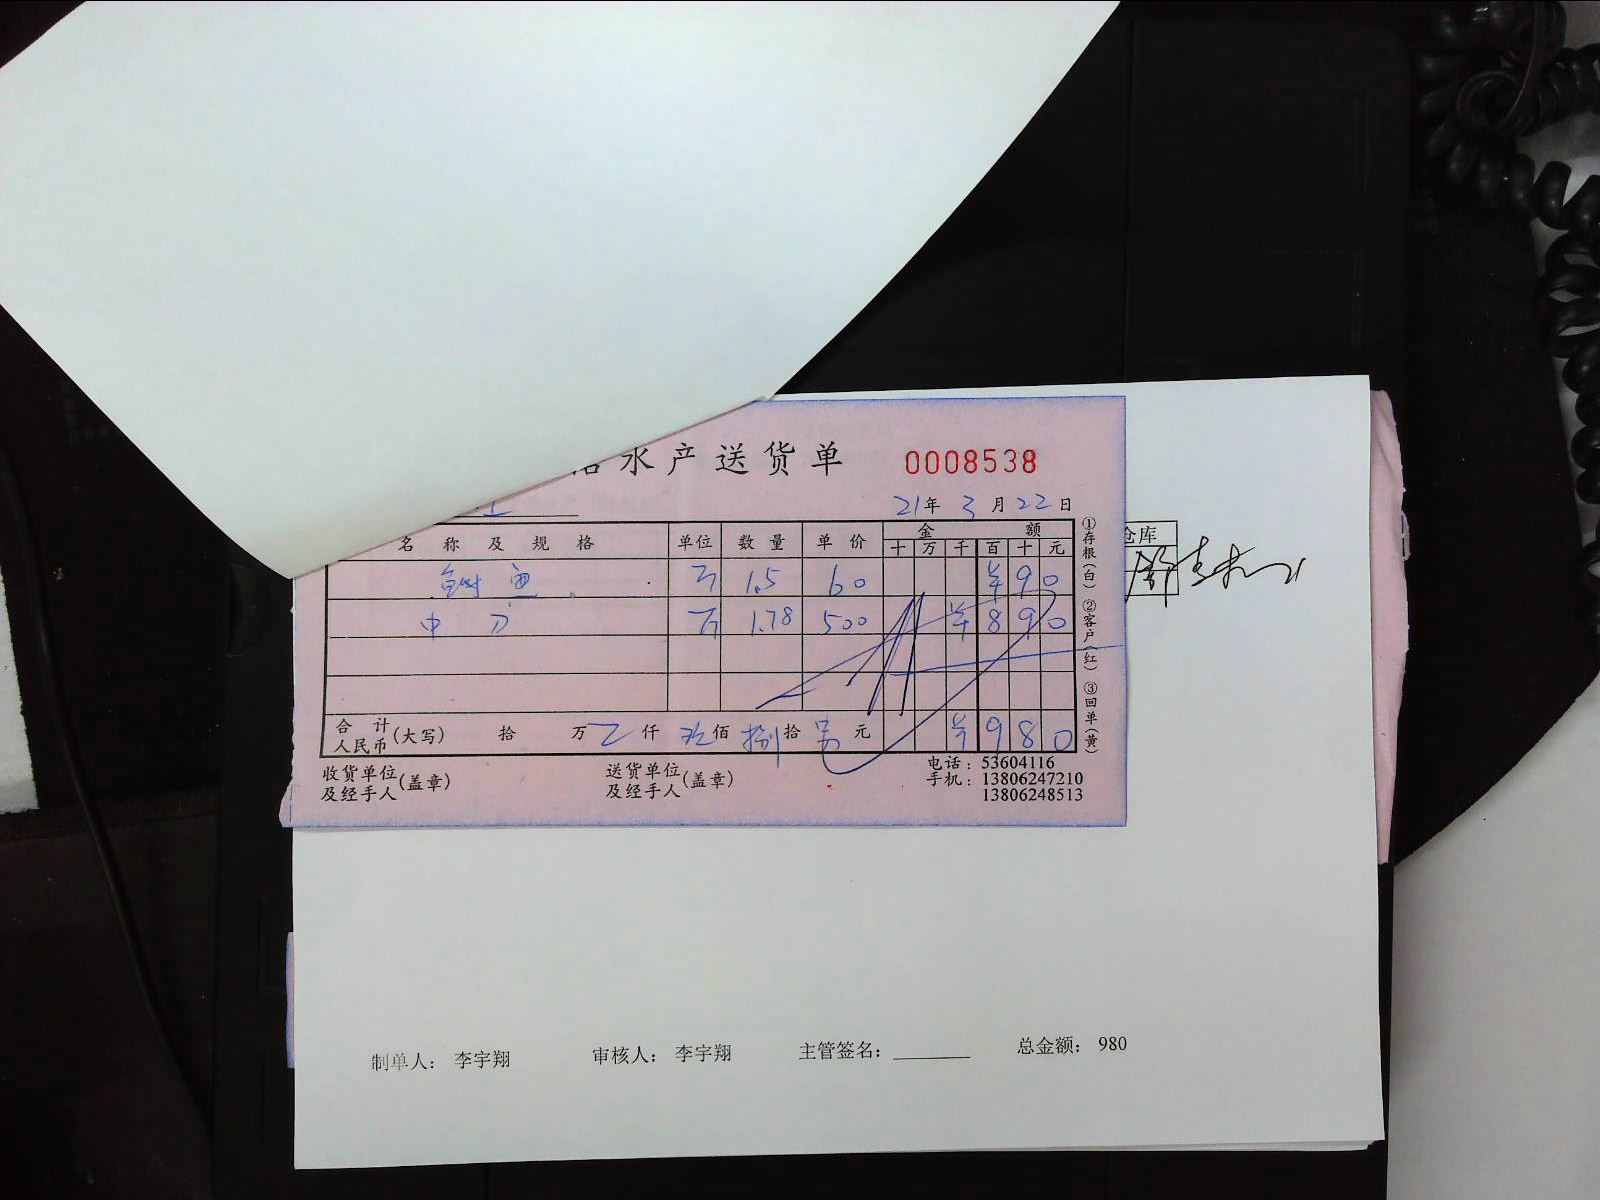 水产送货单 0008538
21年3月22日
名称及规格 单位 数量 单价 金额
十 万 千 百 十 元
鱼 斤 1.5 60 ¥90
中刀 斤 1.78 500 ¥890
合计人民币(大写) 拾 万 乙仟 玖佰 捌拾 另元 ¥980
①存根(白) ②客户(红) ③回单(黄)
收货单位及经手人(盖章) 送货单位及经手人(盖章)
电话:53604116
手机:13806247210
13806248513
仓库
制单人: 李宇翔 审核人: 李宇翔 主管签名: 总金额: 980